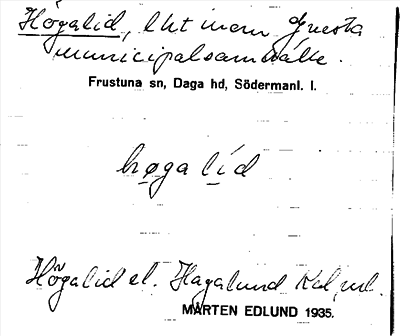 Högalid, lht inom Gnesta
municipalsamhälle.
Frustuna sn, Daga hd, Södermanl. l.
høgalíd
Högalid el. Hagalund
MÅRTEN EDLUND 1935.